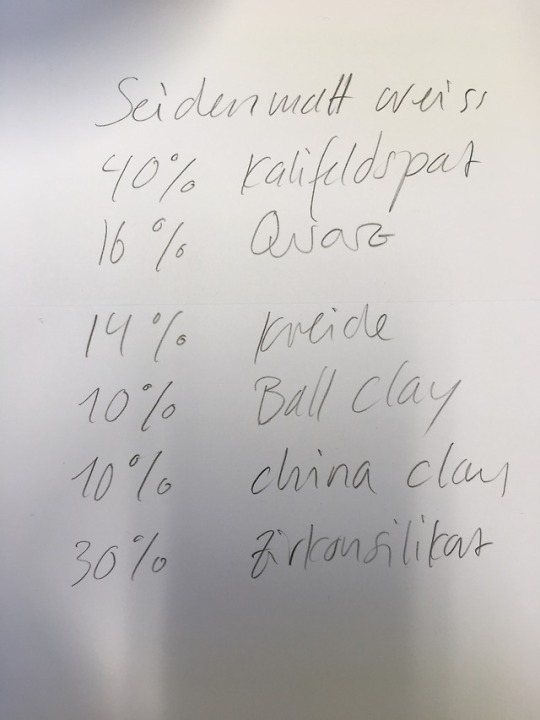 Seidenmatt weiss
40% Kalifeldspat
16% Quarz
14% Kreide
10% Ball Clay
10% china clay
30% Zirkonsilikat